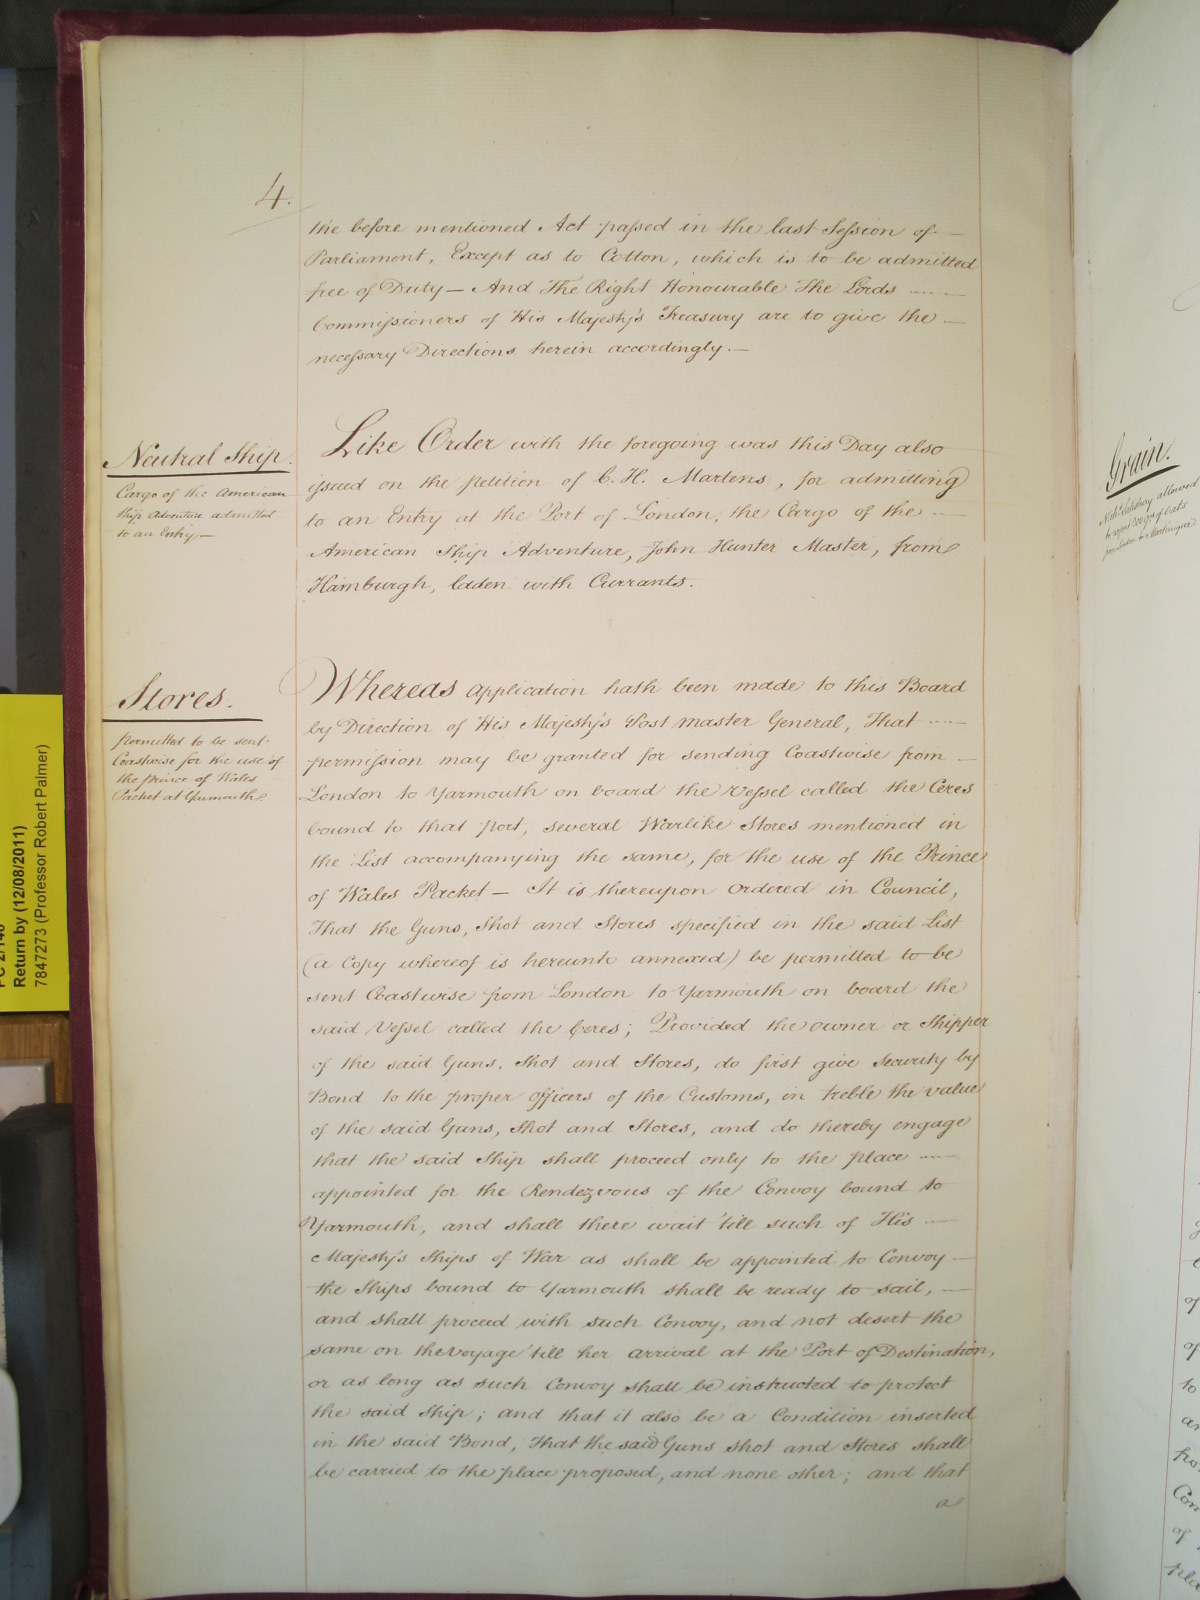 4.
the before mentioned Act passed in the last Session of —
Parliament, Except as to Cotton, which is to be admitted
free of Duty — And The Right Honourable The Lords ---- —
Commissioners of His Majesty's Treasury are to give the —
necessary Directions herein accordingly. —
Neutral Ship.
Cargo of the American
Ship Adventure admitted
to an Entry —
Like Order with the foregoing was this Day also
issued on the petition of C. H. Martens, for admitting
to an Entry at the Port of London, the Cargo of the —
American Ship Adventure, John Hunter Master, from
Hamburgh, laden with Currants.
Stores.
permitted to be sent
Coastwise for the use of
the Prince of Wales
Packet at Yarmouth
Whereas application hath been made to this Board
by Direction of His Majesty's Post master General, That ----
permission may be granted for sending Coastwise from —
London to Yarmouth on board the Vessel called the Ceres
bound to that port, several Warlike Stores mentioned in
the List accompanying the same, for the use of the Prince
of Wales Packet — It is thereupon Ordered in Council,
That the Guns, Shot and Stores specified in the said List
(a Copy whereof is hereunto annexed) be permitted to be
sent Coastwise from London to Yarmouth on board the
said Vessel called the Ceres; Provided the owner or Shipper
of the said Guns, Shot and Stores, do first give Security by
Bond to the proper Officers of the Customs, in treble the value
of the said Guns, Shot and Stores, and do thereby engage
that the said Ship shall proceed only to the place ----
appointed for the Rendezvous of the Convoy bound to
Yarmouth, and shall there wait 'till such of His ----
Majesty's Ships of War as shall be appointed to Convoy —
the Ships bound to Yarmouth shall be ready to sail, —
and shall proceed with such Convoy, and not desert the
same on the Voyage 'till her arrival at the Port of Destination,
or as long as such Convoy shall be instructed to protect
the said Ship; and that it also be a Condition inserted
in the said Bond, That the said Guns Shot and Stores shall
be carried to the place proposed, and none other; and that
a
Return by (12/08/2011)
7847273 (Professor Robert Palmer)
Grain.
allowed
to export